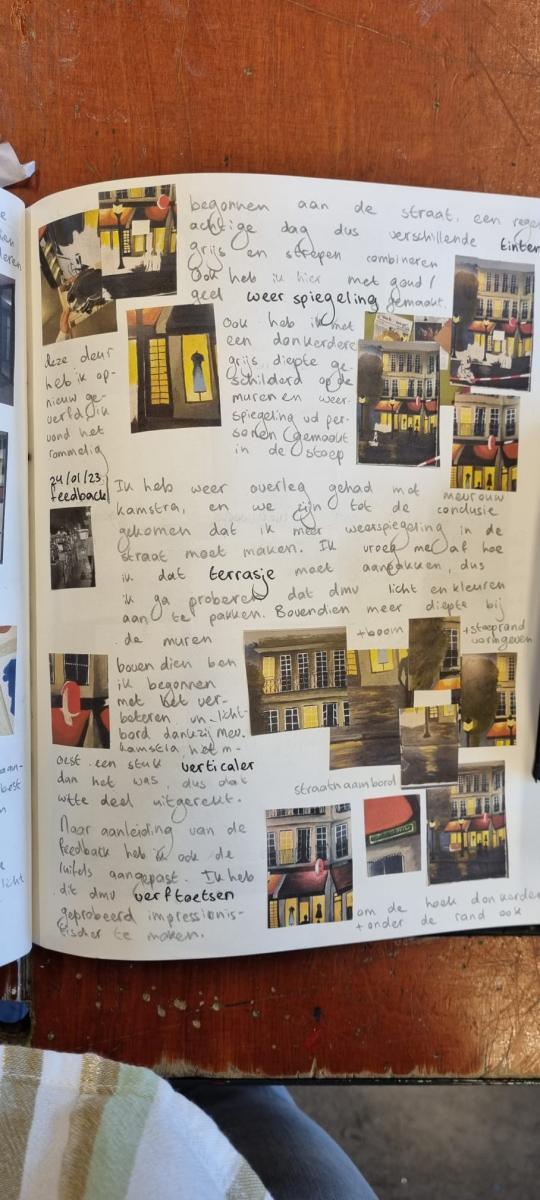 begonnen aan de straat, een regen
achtige dag dus verschillende tinten
grijs en strepen combineren
Ook heb ik hier met goud /
geel weerspiegeling gemaakt.
Ook heb ik met
een donkerdere
grijs diepte ge-
schilderd op de
muren en weer-
spiegeling vd per-
sonen gemaakt
in de stoep
deze deur
heb ik op-
nieuw ge-
verfd, ik
vond het
rommelig
24/01/23
feedback
Ik heb weer overleg gehad met meurouw
kamstra, en we zijn tot de conclusie
gekomen dat ik meer weerspiegeling in de
straat moet maken. Ik vroeg me af hoe
ik dat terrasje moet aanpakken, dus
ik ga proberen dat dmv licht en kleuren
aan te pakken. Bovendien meer diepte bij
de muren
+boom
+stoeprand
vormgeven
bovendien ben
ik begonnen
met het ver-
beteren licht-
bord dankzij mev.
kamstra, het m-
oest een stuk verticaler
dan het was, dus dat
witte deel uitgerekt.
straatnaambord
Naar aanleiding van de
feedback heb ik ook de
luifels aangepast. Ik heb
dit dmv verftoetsen
geprobeerd impressionis-
tischer te maken.
om de hoek donkerder
+ onder de rand ook